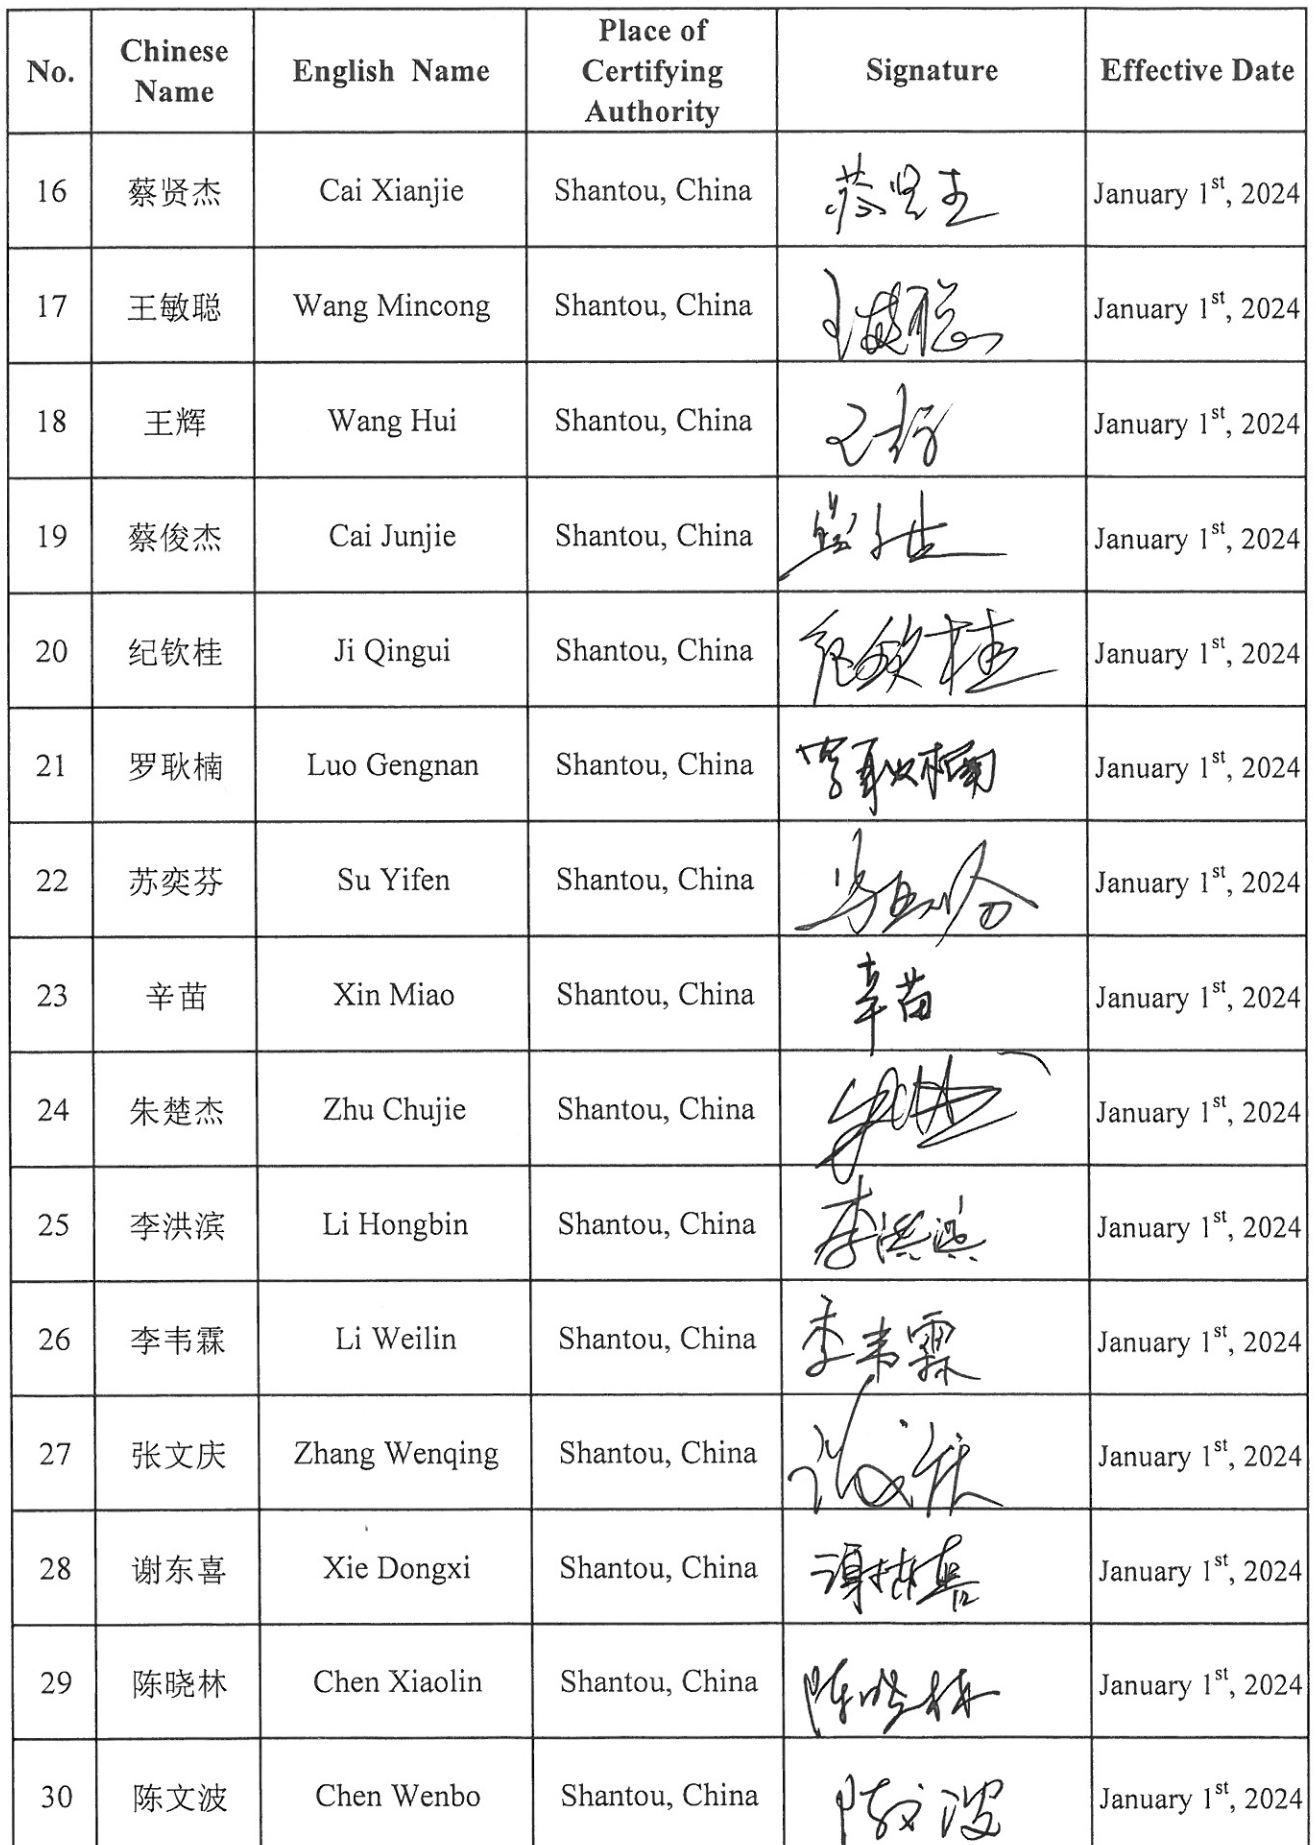 No. Chinese Name English Name Place of Certifying Authority Signature Effective Date
16 蔡贤杰 Cai Xianjie Shantou, China 蔡贤杰 January 1st, 2024
17 王敏聪 Wang Mincong Shantou, China 王敏聪 January 1st, 2024
18 王辉 Wang Hui Shantou, China January 1st, 2024
19 蔡俊杰 Cai Junjie Shantou, China January 1st, 2024
20 纪钦桂 Ji Qingui Shantou, China 纪钦桂 January 1st, 2024
21 罗耿楠 Luo Gengnan Shantou, China 罗耿楠 January 1st, 2024
22 苏奕芬 Su Yifen Shantou, China January 1st, 2024
23 辛苗 Xin Miao Shantou, China 辛苗 January 1st, 2024
24 朱楚杰 Zhu Chujie Shantou, China January 1st, 2024
25 李洪滨 Li Hongbin Shantou, China 李洪滨 January 1st, 2024
26 李韦霖 Li Weilin Shantou, China 李韦霖 January 1st, 2024
27 张文庆 Zhang Wenqing Shantou, China January 1st, 2024
28 谢东喜 Xie Dongxi Shantou, China 谢东喜 January 1st, 2024
29 陈晓林 Chen Xiaolin Shantou, China 陈晓林 January 1st, 2024
30 陈文波 Chen Wenbo Shantou, China 陈文波 January 1st, 2024